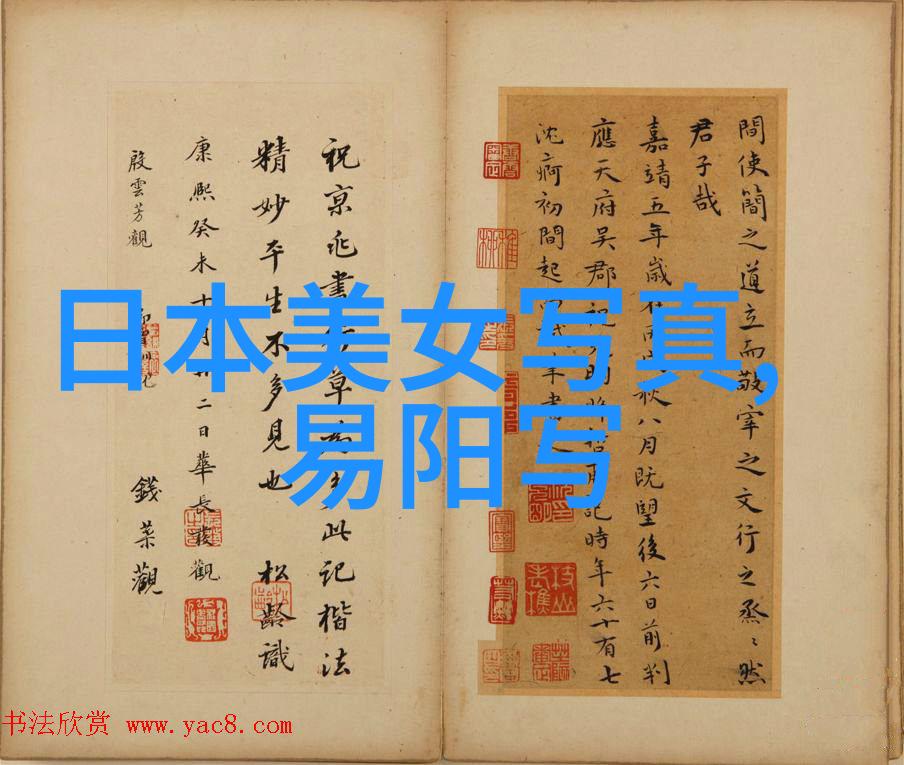 日本美女写真,
易阳写
間使簡之道立而敬宰之文行之烝〻然
君子哉
嘉靖五年歲在丙秋八月既望後六日前判
應天府吳郡祝允明記時年六十有七
沈痾初間起書
祝京兆書草此記楷法
精妙平生不多見也 松齡識
康熙癸未十月廿二日華長發觀
殷雲芳觀
錢觀
书法欣赏 www.yac8.com